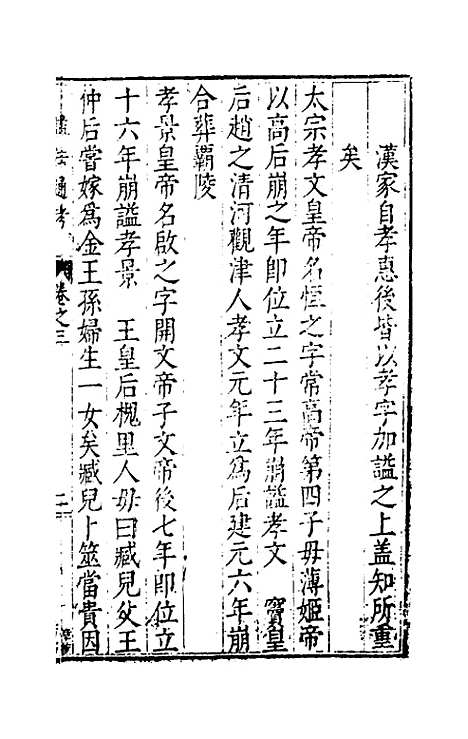 漢家自孝惠後皆以孝字加諡之上蓋知所重
矣
太宗孝文皇帝名恒之字常高帝第四子毋薄姬帝
以高后崩之年即位立二十三年崩諡孝文 竇皇
后趙之清河觀津人孝文元年立爲后建元六年崩
合葬覇陵
孝景皇帝名啟之字開文帝子文帝後七年即位立
十六年崩諡孝景 王皇后槐里人毋曰臧兒父王
仲后嘗嫁爲金王孫婦生一女矣臧兒卜筮當貴因
通考 卷之三